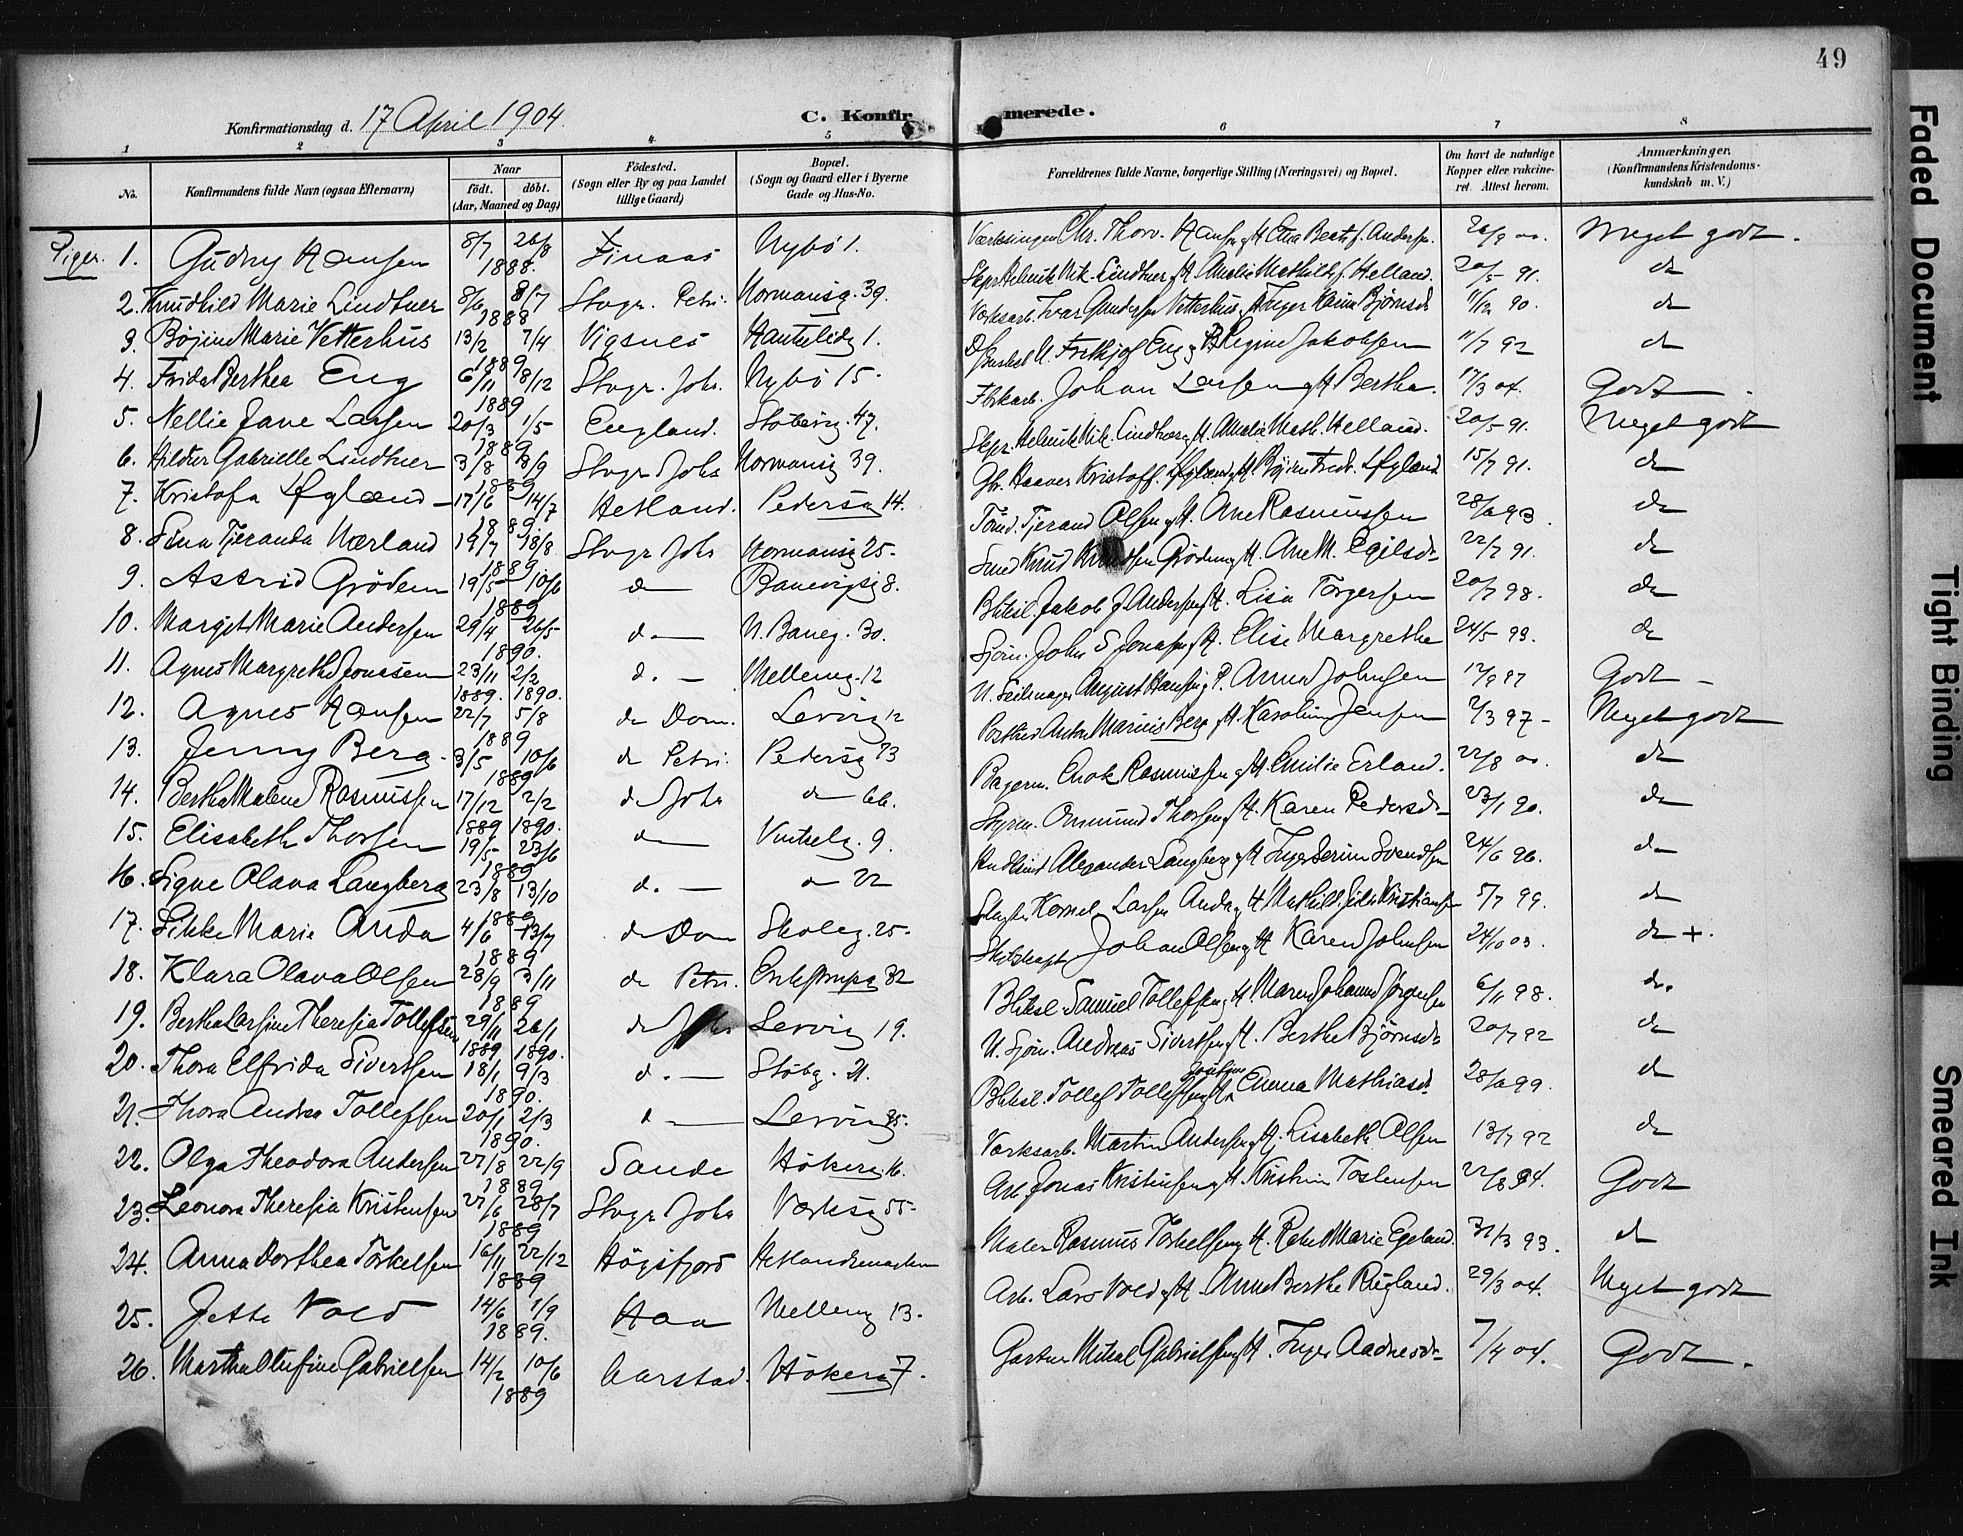 49
Konfirmationsdag d. 17 April 1904
C. Konfirmerede.
1 2 3 4 5 6 7 8
No. Konfirmandens fulde Navn (ogsaa Efternavn) Naar födt. döbt. (Aar, Maaned og Dag) Födested. (Sogn eller By og paa Landet tillige Gaard) Bopæl. (Sogn og Gaard eller i Byerne Gade og Hus-No. Forældrenes fulde Navne, borgerlige Stilling (Næringsvei) og Bopæl. Om havt de naturlige Kopper eller vakcineret. Attest herom. Anmærkninger. (Konfirmandens Kristendomskundskab m. V.)
Piger. 1. Gudny Hansen 8/7 26/8 1888. Finaas Nybö 1. Chr. Thorv. Hansen og H. 26/9 00. Meget godt.
2. Marie Lindtner 8/6 8/7 1888 Stvgr. Petri. Normansg. 39. Skpr. Helmik Nik. Lindtner og H. Amalie Mathilde f. Helland. 20/5 91. do
3. Marie Vetterhus 13/2 7/4 1889 Vigsnes 1. Værksarb. Ivar Gundersen Vetterhus og Inger Karine Bjørnsd. 11/12 90. do
4. Frida Berthea Eng 6/11 8/12 1889 Stvgr. Johs. Nybö 15. Frithjof Eng og Regine Jakobsen 11/7 92 do
5. Nellie Jane Larsen 20/3 1/5 1889 England. Stöberig. 47. Fbkarb. Johan Larsen og H. Bertha. 17/3 04. Godt.
6. Hildur Gabrielle Lindtner 3/8 8/9 1889 Stvgr Johs Normansg 39. Skpr. Helmik Nik. Lindtner og H. Amalie Math. Helland. 20/5 91. Meget godt
7. Kristofa Ifgland 17/6 14/7 1889. Hetland. Pedersg 14. Kristoff. Ifgland og H. 15/7 91. do
8. Sina Tjeranda Nærland 19/7 18/8 1889. Stvgr Johs Normansg 25. Tönd. Tjerand Olsen og H. Ane Rasmussen 93. do
9. Astrid Grödem 19/5 10/6 1889 do Banevigsg 8. Smed Knud Knudsen Grödem og H. Ane M. Egilsdr 22/7 91. do
10. Margit Marie Andersen 29/4 26/5 1890. do N. Baneg. 30. Blikksl. Jakob J. Andersen og H. Lisa Torgersen 20/7 98. do
11. Agnes Margrethe Jonassen 23/11 2/2 1889. 1890. do. Melleng. 12 Sjöm. John S Jonassen og H. Elise Margrethe 24/5 99. do
12. Agnes Hansen 22/7 5/8 1889 do Dom. Lervig 12 U. Seilmager August Hansen og P. Anna Johnsen 97 Godt
13. Jenny Berg. 3/5 10/6 1889 do Petri. Pedersg 73 Postbud Anton Marius Berg og H. Karoline Jensen 2/3 97 Meget godt
14. Bertha Malene Rasmussen 17/12 2/2 1889 1890. do Johs do 66. Bagerm. Enok Rasmussen og H. Emilie Erland. 22/8 00. do
15. Elisabeth Thorsen 19/5 23/6 1889 do Vintelg. 9. Styrm. Ommund Thorsen og H. Karen Pedersdr 23/1 90. do
16. Signe Olava Langberg 23/8 13/10 1889 do. do 22 Alexander Langberg og H. Inger Serine Svendsen 24/6 96. do
17. Sikke Marie Anda 4/6 13/7 1889 do Dom Skoleg. 25. Slagter Kornel. Larsen Anda og H. Mathilde Kristiansen 5/7 99. do
18. Klara Olava Olsen 28/9 3/11 1889 do Petri. Enkestrupg 32 Johan Olsen og H Karen Johnsen 24/10 03. do +.
19. Bertha Larsine Theresia Tollefsen 29/11 26/1 1889 1890. do Johs Lervig 19. Blikksl. Samuel Tollefsen og H Maren Johanne Jørgensen 6/11 98. do.
20. Thora Elfrida Sivertsen 18/1 9/3 1890. do. Støbg. 21. U. Sjöm. Andreas Sivertsen og H. Berthe Bjørnsdr 20/7 92 do
21. Thora Andrea Tollefsen 20/1 2/3 1890. do Lervig 35. Blikksl. Tollef Tollefsen og H. Emma Mathiasdr 99. do
22. Olga Theodora Andersen 27/8 22/9 1889 Sande Hökerg. 16. Værksarb. Martin Andersen og H. Lisabeth Olsen 13/7 92 do
23. Leonora Theresia Kristensen 27/6 28/7 1889 Stvgr Johs Værksg 55. Arb. Jonas Kristensen og H. Kristine Toslensen 22/8 94. Godt
24. Anna Dorthea Törkelsen 16/11 22/12 1889 Högsfjord Hetlandsmarken Maler Rasmus Törkelsen og H. Rakel Marie Egeland. 31/3 93. do
25. Jette Vold 14/6 1/9 1889. Haa Melleng 13. Arb. Lars Vold og H. Anne Berthe Rugland. 29/3 04. Meget godt
26. Martha Olufine Gabrielsen 14/2 10/6 1889 Aarstad. Hökerg 7. Gartner Mikal Gabrielsen og H. Inger Aadnesdr 7/4 04. Godt.
Faded Document
Tight Binding
Smeared Ink